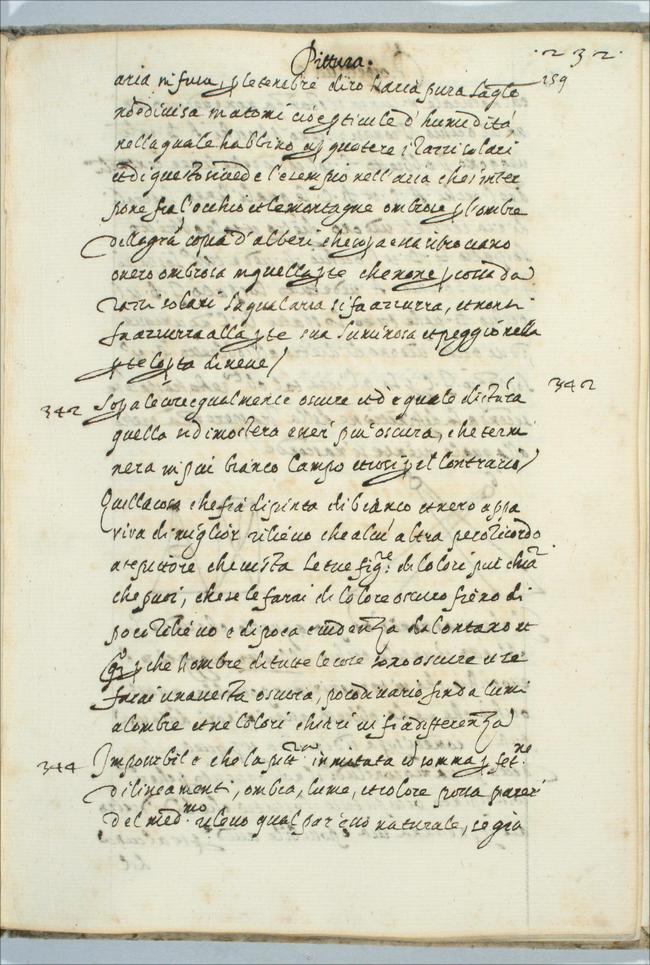 Pittura.
232
aria in fuora, p le tenebre dico l'aria pura la qle
159
no è divisa in atomi cioè particule d'humidità
nella quale habbino a pcuotere i razzi solari
et di questo si vede l'esempio nell'aria che s'inter
pone fra l'occhio et le montagne ombrose p l'ombre
della grā copia d'alberi che sopa essa si trovano
overo ombrosa in quella pte che non è pcossa da
razzi solari la qual aria si fa azzurra, et non si
fa azzurra alla pte sua luminosa et peggio nella
pte copta di neve/
342 Sopa le cose egualmente oscure et d'eguale distāza 342
quella si dimostera esser piu oscura, che termi
nera in piu bianco campo et cosi p il contrario/
Quella cosa che fia dipinta di bianco et nero appa
rira di miglior rilievo che alcu' altra pero ricordo
a te pittore che vesta le tue figre: di colori piu chiari
che puoi, che se le farai di colore oscuro fieno di
poco rilievo e di poca evidenza da lontano et
qsto p che l'ombre di tutte le cose sono oscure et se
farai una vesta oscura, poco divario fia da lumi
a l'ombre et ne colori chiari vi fia differenza/
344 Impossibil è che la pittra immitata co somma pfetne
di lineamenti, ombra, lume, et colore possa parere
del medmo rilevo qual par esso naturale, se gia